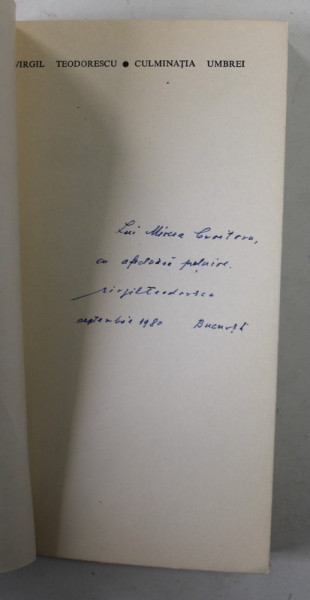 VIRGIL TEODORESCU ● CULMINAȚIA UMBREI
Lui Mircea Croitoru,
cu afectuoasă prețuire.
Virgil Teodorescu
septembrie 1980 București